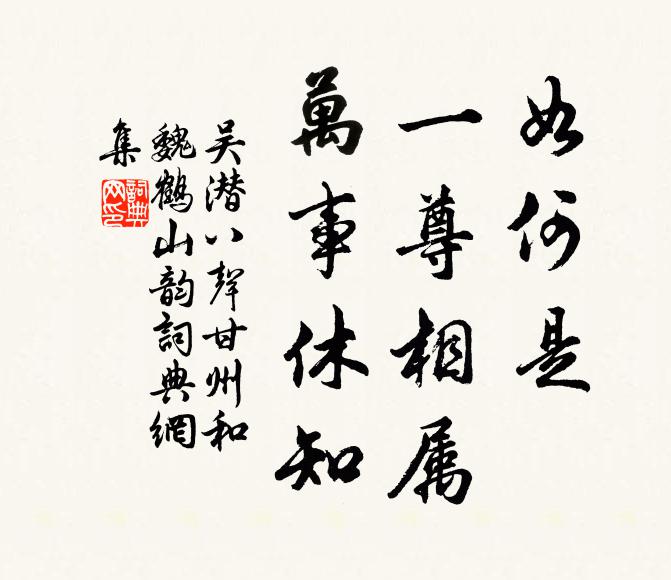 如何是
一尊相属
萬事休知
吴潜八聲甘州和
魏鶴山韵詞典網
集
詞典
网印